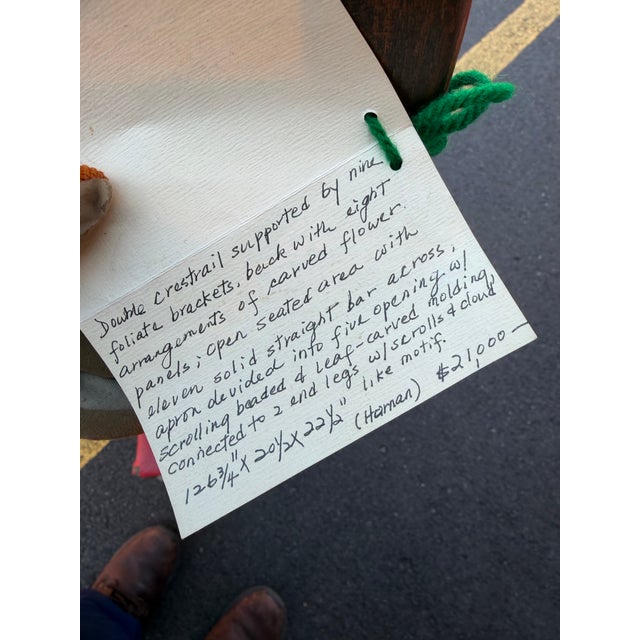 Double crestrail supported by nine
foliate brackets, back with eight
arrangements of carved flower
panels; open seated area with
eleven solid straight bar across,
apron devided into five opening w/
scrolling beaded & leaf-carved molding,
connected to 2 end legs w/scrolls & cloud
like motif.
126 3/4" x 20 1/2 x 22 1/2" (Hainan) $21,000—